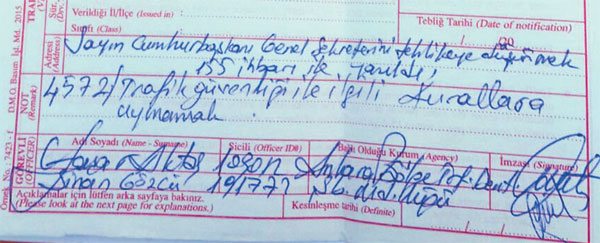 Verildiği İl/İlçe (Issued in)
Tebliğ Tarihi (Date of notification)
Sınıfı (Class)
/20
Adresi (Address)
Sayın Cumhurbaşkanı Genel Sekreterini tehlikeye düşürmek
155 ihbarı ile yazıldı,
NOT (Remark)
4572/Trafik güvenliği ile ilgili kurallara
uymamak.
GÖREVLİ (OFFICER)
Adı Soyadı (Name - Surname) Sicili (Officer ID#) Bağlı Olduğu Kurum (Agency) İmzası (Signature)
Aktaş Ankara Bölge Trf. Denet.
Sinan Gözcü 191777 Müdürlüğü
Açıklamalar için lütfen arka sayfaya bakınız.
(Please look at the next page for explanations.)
Kesinleşme tarihi (Definite)
D.M.O. Basım İşl. Md. 2015
Örnek No: 7423 - f